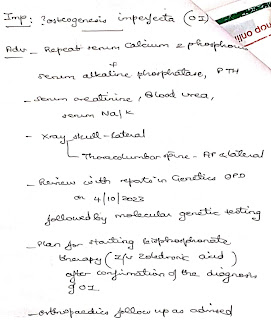 Imp: ?osteogenesis imperfecta (OI)
Adv - Repeat serum Calcium & phosphorus
+
serum alkaline phosphatase, PTH
- Serum creatinine, Blood urea,
serum Na/K
- Xray skull - lateral
Thoracolumbar spine - AP & lateral
- Review with reports in Genetics OPD
on 4/10/2023
followed by molecular genetic testing
- Plan for starting Bisphosphonate
therapy (I/V Zoledronic acid)
after confirmation of the diagnosis
of OI
- Orthopaedics follow up as advised